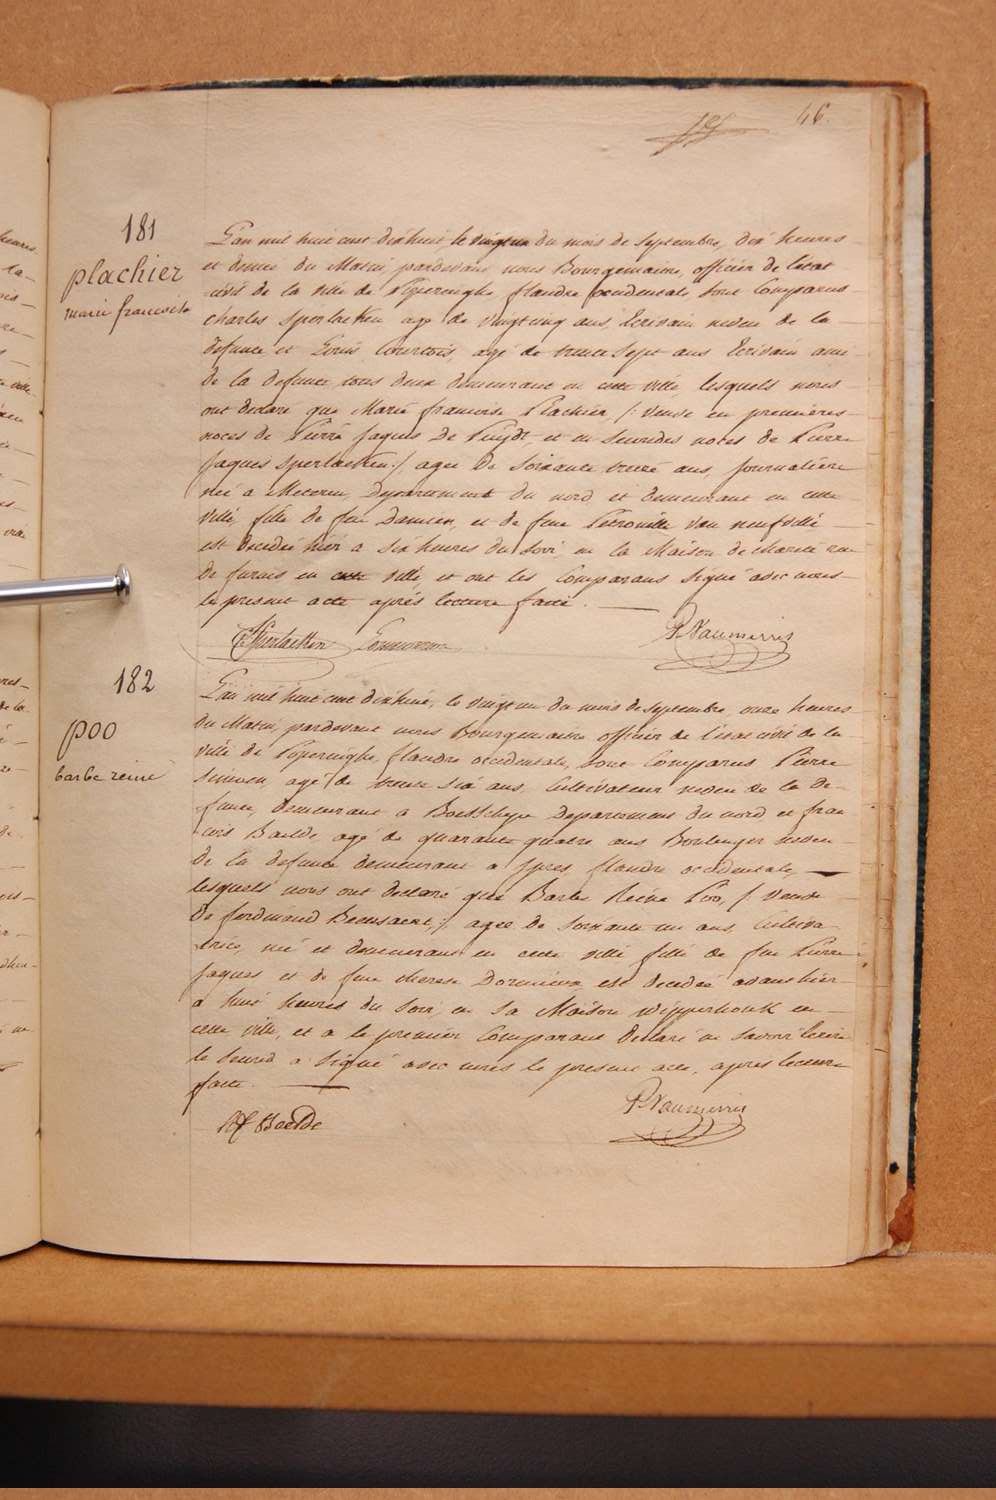 46.
181
plachier
marie francoise
L'an mil huit cent dixhuit le vingtun du mois de Septembre, dix heures
et demie du Matin, pardevant nous Bourgemaitre, officier de l'état
civil de la ville de Poperinghe flandre occidentale sont Comparus
Charles Sperlaeken agé de vingtcinq ans, Ecrivain neveu de la
defunte et Louis Courtois, agé de trente Sept ans Ecrivain ami
de la defunte tous deux demeurant en cette ville, lesquels nous
ont declaré que Marie francoise Plachier, /: veuve en premières
noces de Pierre Jaques De Puydt, et en secondes noces de Pierre
Jaques Sperlaeken :/ agée de Soixante treize ans, journalière
née a Meteren, Departement du nord et demeurant en cette
ville, fille de feu Damien, et de feue Petronille van neufville
est decedée hier a six heures du soir, en la Maison de charité rue
de furnes en cette ville, et ont les Comparans Signé avec nous
le present acte après lecture faite.
Sperlaeken
P. Vanmerris
182
poo
barbe reine
L'an mil huit cent dixhuit, le vingtun du mois de Septembre, onze heures
du Matin, pardevant nous Bourgemaitre officier de l'état civil de la
ville de Poperinghe, flandre occidentale, sont Comparus Pierre
Simoen, agé de trente six ans, Cultivateur neveu de la de-
funte, demeurant a Boesschepe Departement du nord et fran
cois Baelde, agé de quarante quatre ans Boulenger neveu
de la defunte demeurant a Ypres, flandre occidentale,
lesquels nous ont declaré que Barbe Reine Poo, /: veuve
de ferdinand :/ agée de Soixante un ans, Cultiva
trice, née et demeurant en cette ville fille de feu Pierre
Jaques et de feue therese est decedée avanthier
a huit heures du soir, en sa Maison wipperhouk en
cette ville, et a le premier Comparant declaré ne savoir écrire
le second a Signé avec nous le present acte, après lecture
faite.
Baelde
P. Vanmerris